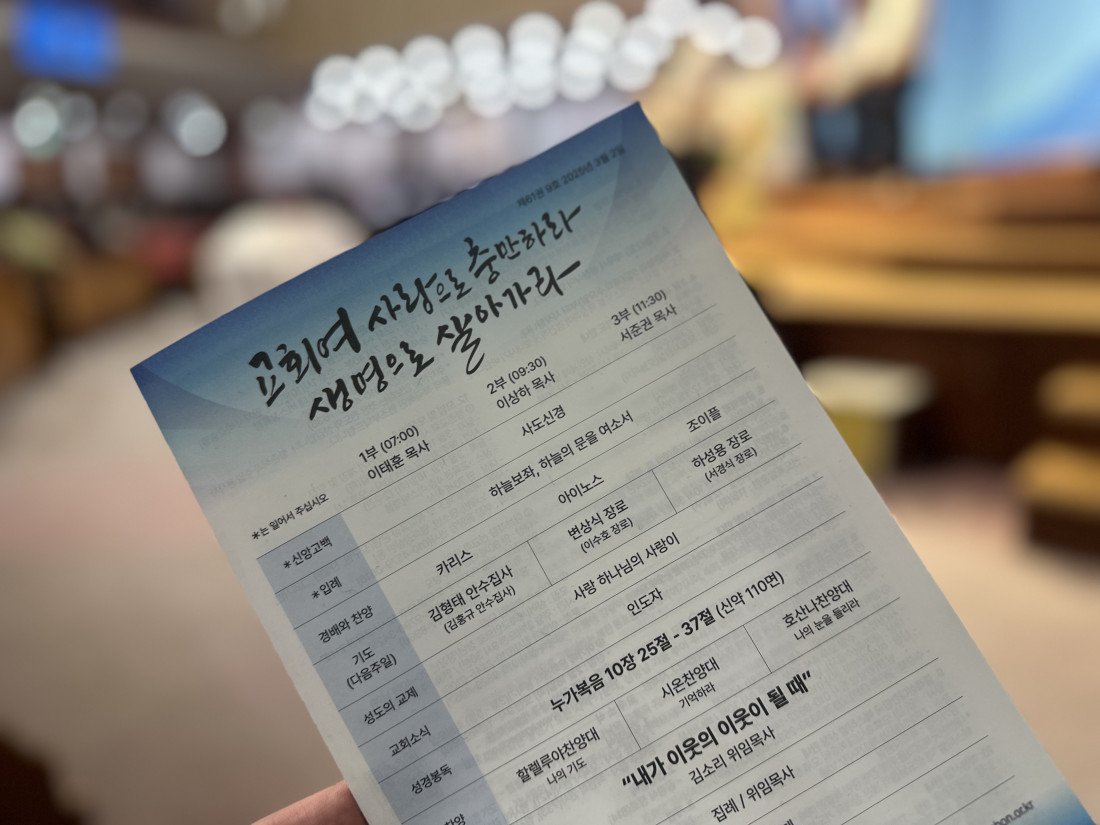 제61권 9호 2025년 3월 2일
교회여 사랑으로 충만하라
생명으로 살아가라
*는 일어서 주십시오
1부 (07:00)
이태훈 목사
2부 (09:30)
이상하 목사
3부 (11:30)
서준권 목사
*신앙고백
사도신경
*입례
하늘보좌, 하늘의 문을 여소서
경배와 찬양
카리스
아이노스
조이플
기도
(다음주일)
김형태 안수집사
(김홍규 안수집사)
변상식 장로
(이수호 장로)
하성용 장로
(서경식 장로)
성도의 교제
사랑 하나님의 사랑이
교회소식
인도자
성경봉독
누가복음 10장 25절 - 37절 (신약 110면)
찬양
할렐루야찬양대
나의 기도
시온찬양대
기억하라
호산나찬양대
나의 눈을 들리라
“내가 이웃의 이웃이 될 때”
김소리 위임목사
집례 / 위임목사